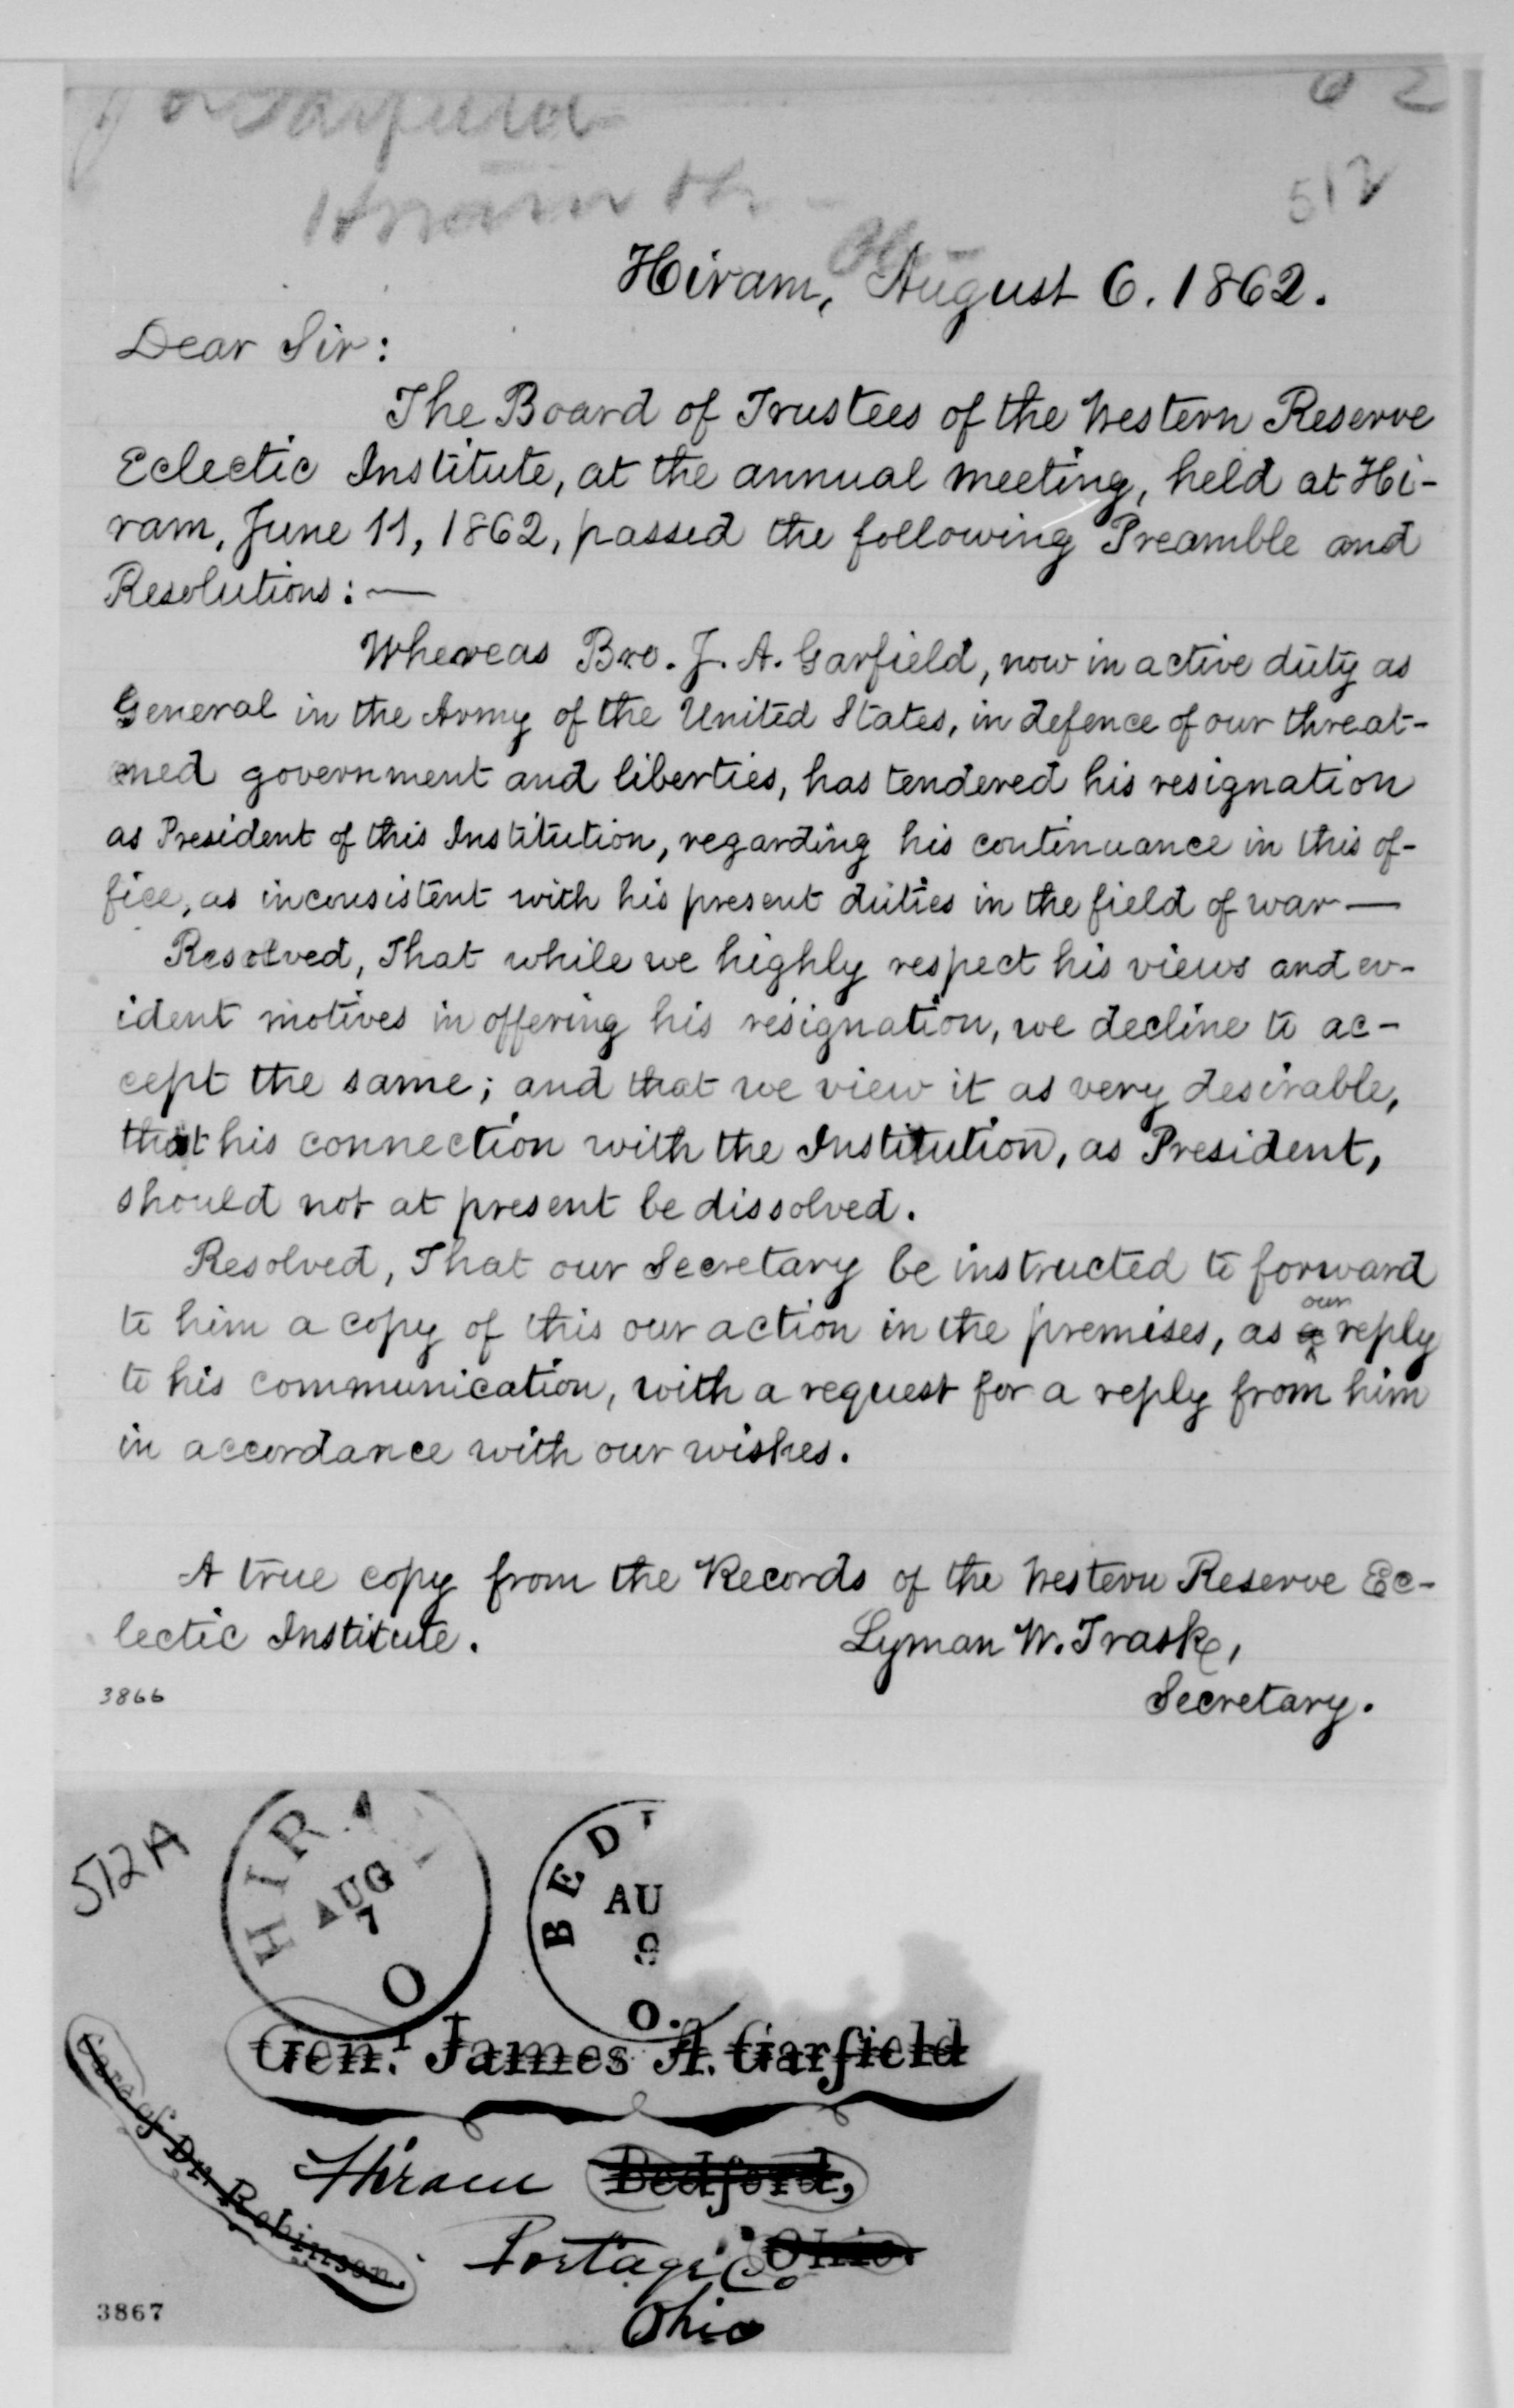 Garfield
Hiram
62
512
Hiram, August 6. 1862.
Dear Sir:
The Board of Trustees of the Western Reserve
Eclectic Institute, at the annual meeting, held at Hi-
ram, June 11, 1862, passed the following Preamble and
Resolutions:—
Whereas Bro. J. A. Garfield, now in active duty as
General in the Army of the United States, in defence of our threat-
ened government and liberties, has tendered his resignation
as President of this Institution, regarding his continuance in this of-
fice, as inconsistent with his present duties in the field of war—
Resolved, That while we highly respect his views and ev-
ident motives in offering his resignation, we decline to ac-
cept the same; and that we view it as very desirable,
that his connection with the Institution, as President,
should not at present be dissolved.
Resolved, That our Secretary be instructed to forward
to him a copy of this our action in the premises, as a our reply
to his communication, with a request for a reply from him
in accordance with our wishes.
A true copy from the Records of the Western Reserve Ec-
lectic Institute.
Lyman W. Trask,
Secretary.
3866
512A
HIRA
AUG
7
O
BED
AU
9
O.
Gen.l James A. Garfield
Care of Dr. Robinson.
Hiram Bedford,
Portage Co Ohio.
Ohio
3867